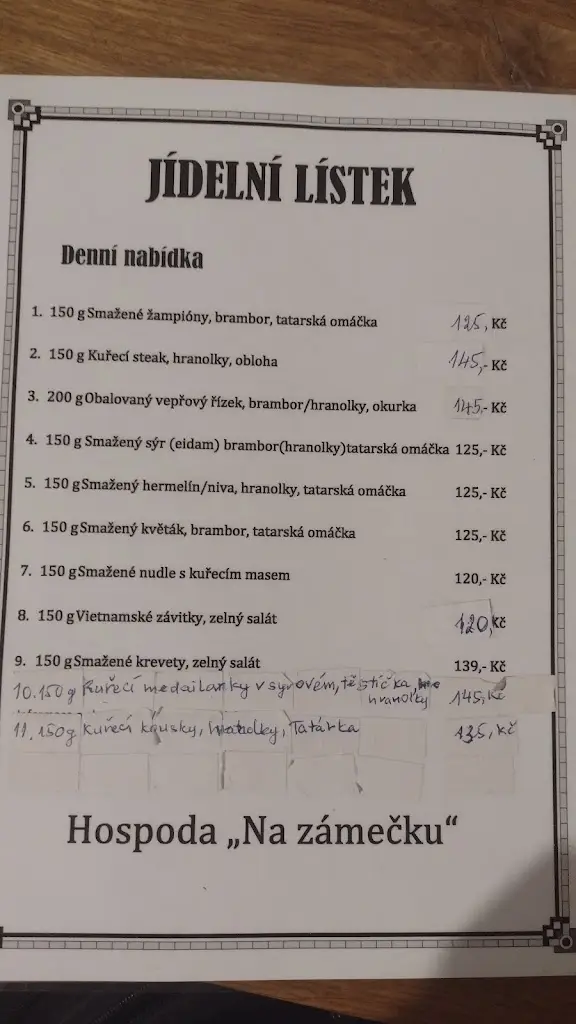 JÍDELNÍ LÍSTEK
Denní nabídka
1. 150 g Smažené žampióny, brambor, tatarská omáčka 125,- Kč
2. 150 g Kuřecí steak, hranolky, obloha 145,- Kč
3. 200 g Obalovaný vepřový řízek, brambor/hranolky, okurka 145,- Kč
4. 150 g Smažený sýr (eidam) brambor(hranolky)tatarská omáčka 125,- Kč
5. 150 g Smažený hermelín/niva, hranolky, tatarská omáčka 125,- Kč
6. 150 g Smažený květák, brambor, tatarská omáčka 125,- Kč
7. 150 g Smažené nudle s kuřecím masem 120,- Kč
8. 150 g Vietnamské závitky, zelný salát 120, Kč
9. 150 g Smažené krevety, zelný salát 139,- Kč
10. 150g Kuřecí medailonky v syrovém, těstíčka, hranolky 145, Kč
11. 150g Kuřecí kousky, hranolky, Tatárka 135, Kč
Hospoda „Na zámečku“